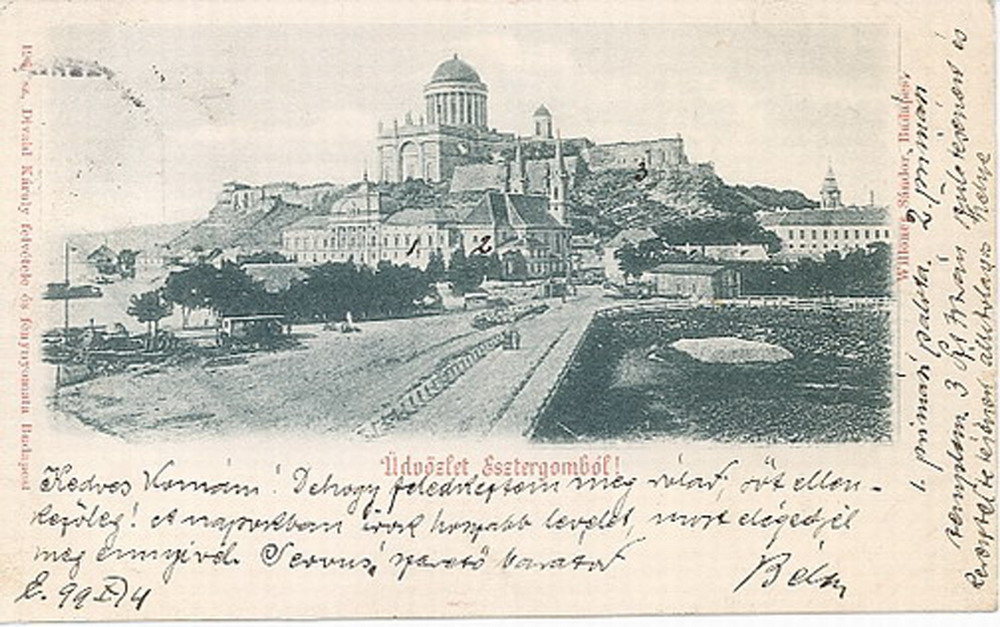 Üdvözlet Esztergomból!
Kedves Komám! Dehogy feledkeztem meg rólad, sőt ellen-
kezőleg! A napokban írok hosszabb levelet, most elégedjél
meg ennyivel. Servus, szerető barátod
Béla
E. 99 X/4
1 2 3
1. primási palota. 2 primási
templom. 3 St István születésének és
keresztelésének állítólagos helye
Divald Károly felvétele és fénynyomata Budapest
Willsoner Sándor, Budapest